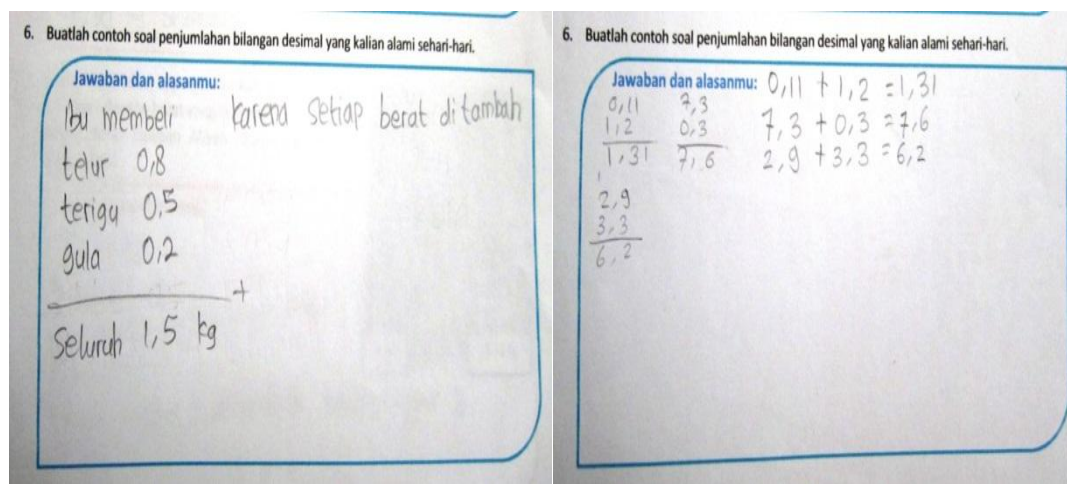 6. Buatlah contoh soal penjumlahan bilangan desimal yang kalian alami sehari-hari.
Jawaban dan alasanmu:
ibu membeli karena setiap berat di tambah
telur 0,8
terigu 0,5
gula 0,2
+
Seluruh 1,5 kg
6. Buatlah contoh soal penjumlahan bilangan desimal yang kalian alami sehari-hari.
Jawaban dan alasanmu: 0,11 + 1,2 = 1,31
0,11 7,3 7,3 + 0,3 = 7,6
1,2 0,3 2,9 + 3,3 = 6,2
1,31 7,6
1
2,9
3,3
6,2